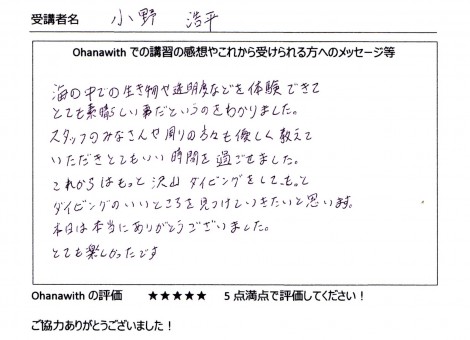 受講者名 小野 浩平
Ohanawith での講習の感想やこれから受けられる方へのメッセージ等
海の中での生き物や透明度などを体験できて
とても素晴らしい事だというのをわかりました。
スタッフのみなさんや周りの方々も優しく教えて
いただきとてもいい時間を過ごせました。
これからはもっと沢山ダイビングをして、もっと
ダイビングのいいところを見つけていきたいと思います。
本日は本当にありがとうございました。
とても楽しかったです
Ohanawith の評価 ★★★★★ 5 点満点で評価してください！
ご協力ありがとうございました！